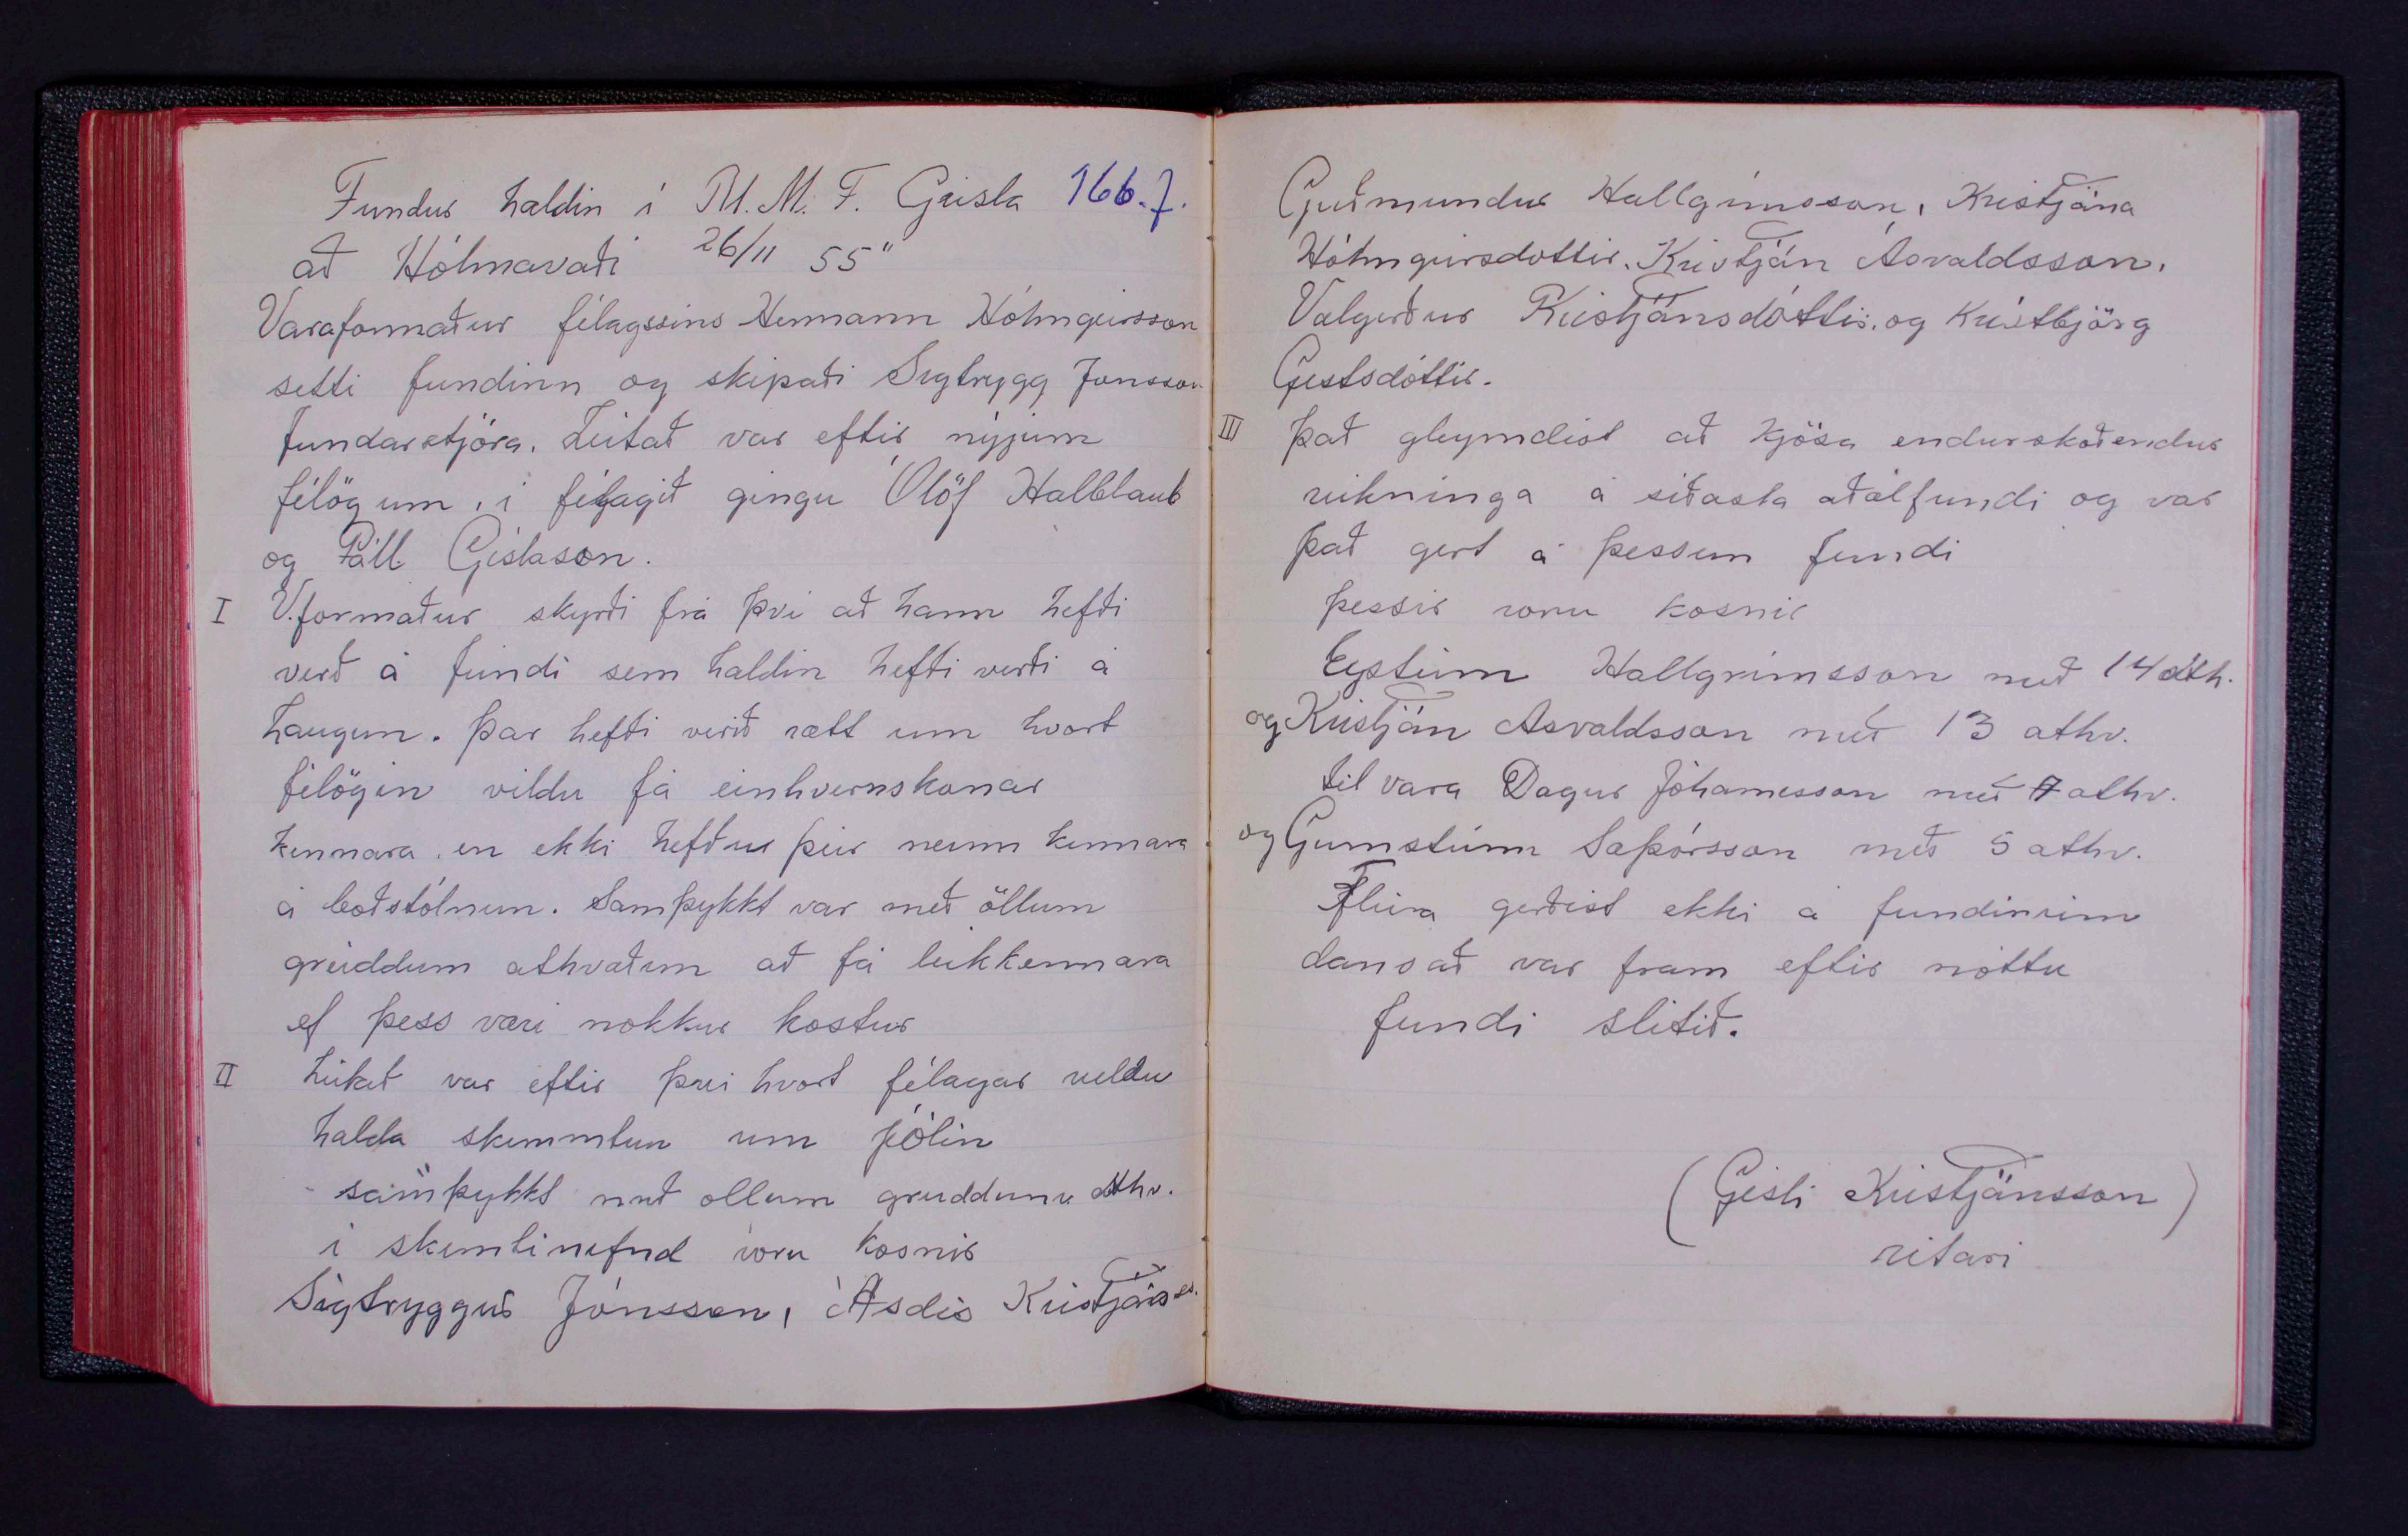 Fundur haldin í U.M.F. Geisla 166.f.
að Hólmavaði 26/11 55"
Varaformaður félagssins Hermann Hólmgeirsson
setti fundinn og skipaði Sigtrygg Jonsson
fundarstjóra. Leitað var eftir nýjum
félögum, í félagið gingu Ólöf Halblaub
og Páll Gíslason.
I V.formaður skyrði frá því að hann hefði
verð á fundi sem haldin hefði verði á
Laugum. Þar hefði verið rætt um hvort
félögin vildu fá einhvernskonar
kennara, en ekki hefður þeir neinn kennara
á boðstólnum. Samþykkt var með öllum
greiddum athvaðum að fá leikkennara
ef þess væri nokkur kostur
II Leitað var eftir því hvort félagar veldu
halda skemmtun um jólin
samþykkt með ollum greiddum athv.
í skemtinefnd voru kosnir
Sigtryggur Jónsson, Ásdís Kristjánsd.
Guðmundur Hallgrímsson, Kristjána
Hólmgeirsdottir, Kristján Ásvaldsson,
Valgerður Kristjánsdóttir, og Kristbjörg
Gestsdóttir.
III Það gleymdist að kjósa endurskoðendur
reikninga á síðasta aðalfundi og var
það gert á þessum fundi
þessir voru kosnir
Eysteinn Hallgrímsson með 14 ath.
og Kristján Asvaldsson með 13 athv.
til vara Dagur Jóhannesson með 7 athv.
og Gumsteinn Sæþórsson með 5 athv.
Fleira gerðist ekki á fundinum
dansað var fram eftir nóttu
fundi slitið.
(Gísli Kristjánsson)
ritari